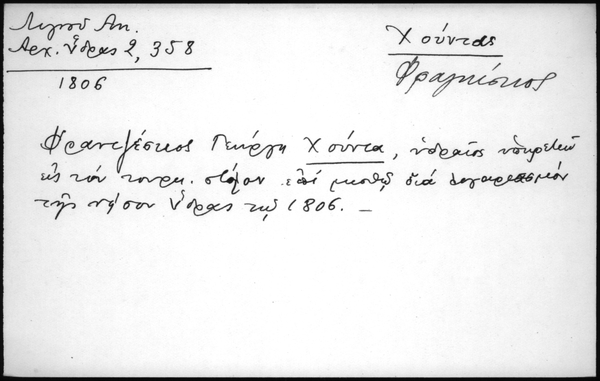 Λιγνού Αν.
Αρχ. Ὕδρας 2, 358
1806
Χούντας
Φραγκίσκος
Φραντζέσκος Γεώργη Χούντα, ὑδραῖος ὑπηρετῶν
εἰς τόν τουρκ. στόλον ἐπί μισθῷ διά λογαριασμόν
τῆς νήσου Ὕδρας τῷ 1806. –